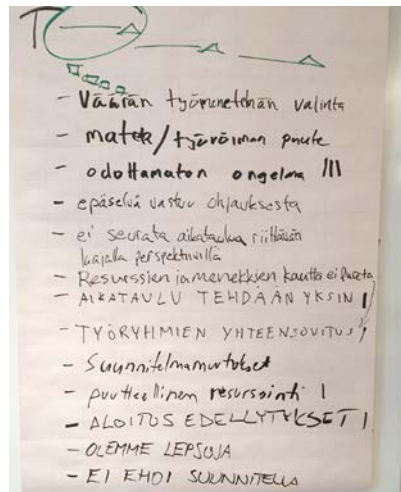 T
- Väärän työmenetelmän valinta
- matsk/työvoiman puute
- odottamaton ongelma III
- epäselvä vastuu ohjauksesta
- ei seurata aikataulua riittävän
laajalla perspektiivillä
- Resurssien ja menekkien kautta ei
- AIKATAULU TEHDÄÄN YKSIN I
- TYÖRYHMIEN YHTEENSOVITUS
- Suunnitelmamuutokset
- puutteellinen resursointi I
- ALOITUS EDELLYTYKSET I
- OLEMME LEPSUJA
- EI EHDI SUUNNITELLA